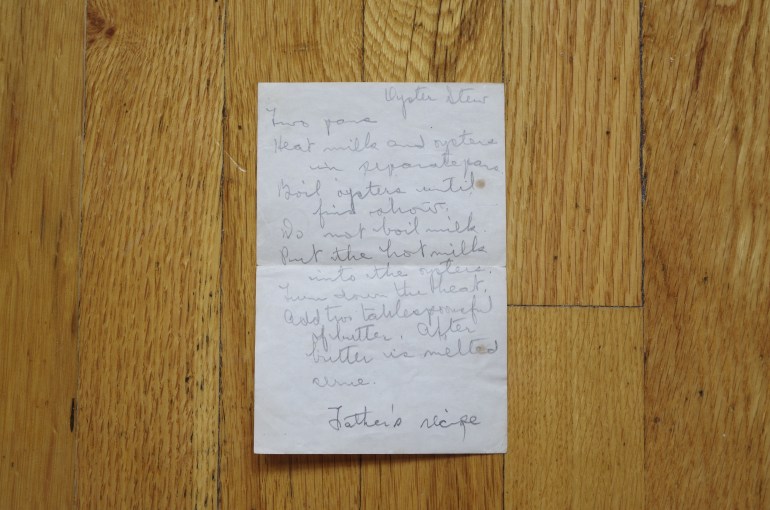 Oyster Stew
Two pans
Heat milk and oysters
in separate pans
Boil oysters until
fins show.
Do not boil milk.
Put the hot milk
into the oysters.
Turn down the heat.
Add two tablespoonsful
of butter. After
butter is melted
serve.
Father's recipe